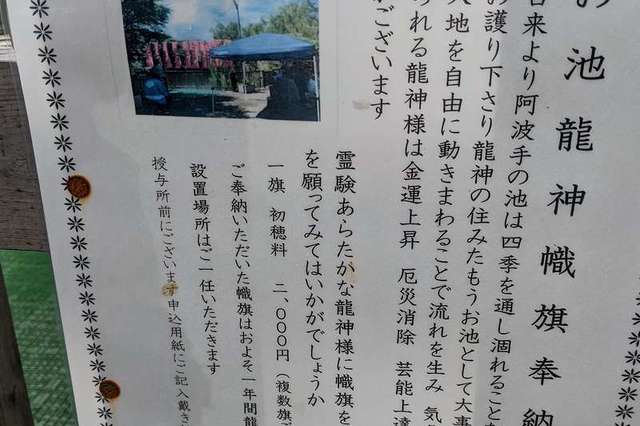 お池龍神幟旗奉納
古来より阿波手の池は四季を通し涸れることな
お護り下さり龍神の住みたもうお池として大事
大地を自由に動きまわることで流れを生み 気
られる龍神様は金運上昇 厄災消除 芸能上達
ございます
霊験あらたかな龍神様に幟旗を
を願ってみてはいかがでしょうか
一旗 初穂料 二、〇〇〇円（複数旗
ご奉納いただいた幟旗はおよそ一年間龍
設置場所はご一任いただきます
授与所前にございます申込用紙にご記入戴き